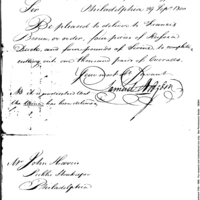 Sir
Philadelphia 29 Sepr 1800
Be pleased to deliver to Francis
Brown, or order, four pieces of Russia
Duck, and four pounds of Twine to complete
cutting out one thousand pairs of Overalls.
Your most Ob Servant
Samuel Hodgdon
NB it is understood that
the has been delivered
Mr John Harris
Public Storekeeper
Philadelphia